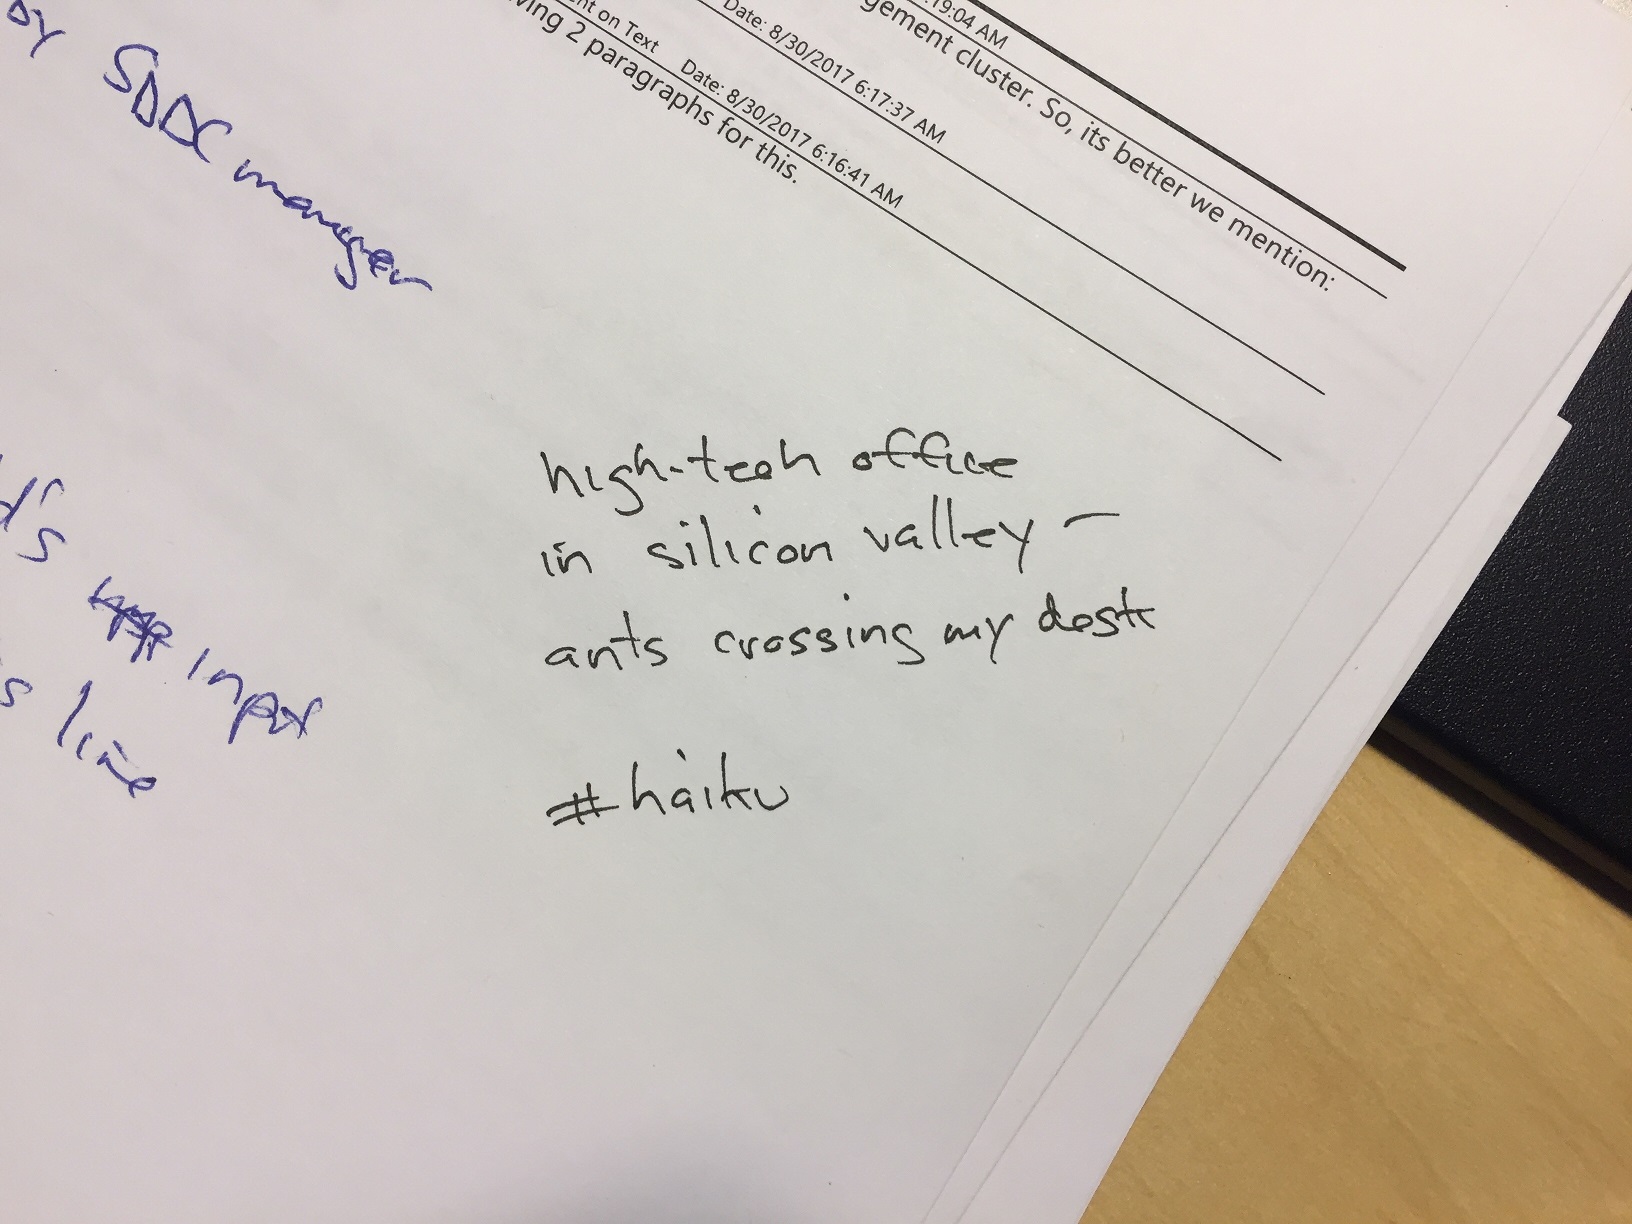 :19:04 AM
gement cluster. So, its better we mention:
Date: 8/30/2017 6:17:37 AM
nt on Text Date: 8/30/2017 6:16:41 AM
ving 2 paragraphs for this.
by SDDC manager
high-tech office
in silicon valley —
ants crossing my desk
#haiku
d's input
s line